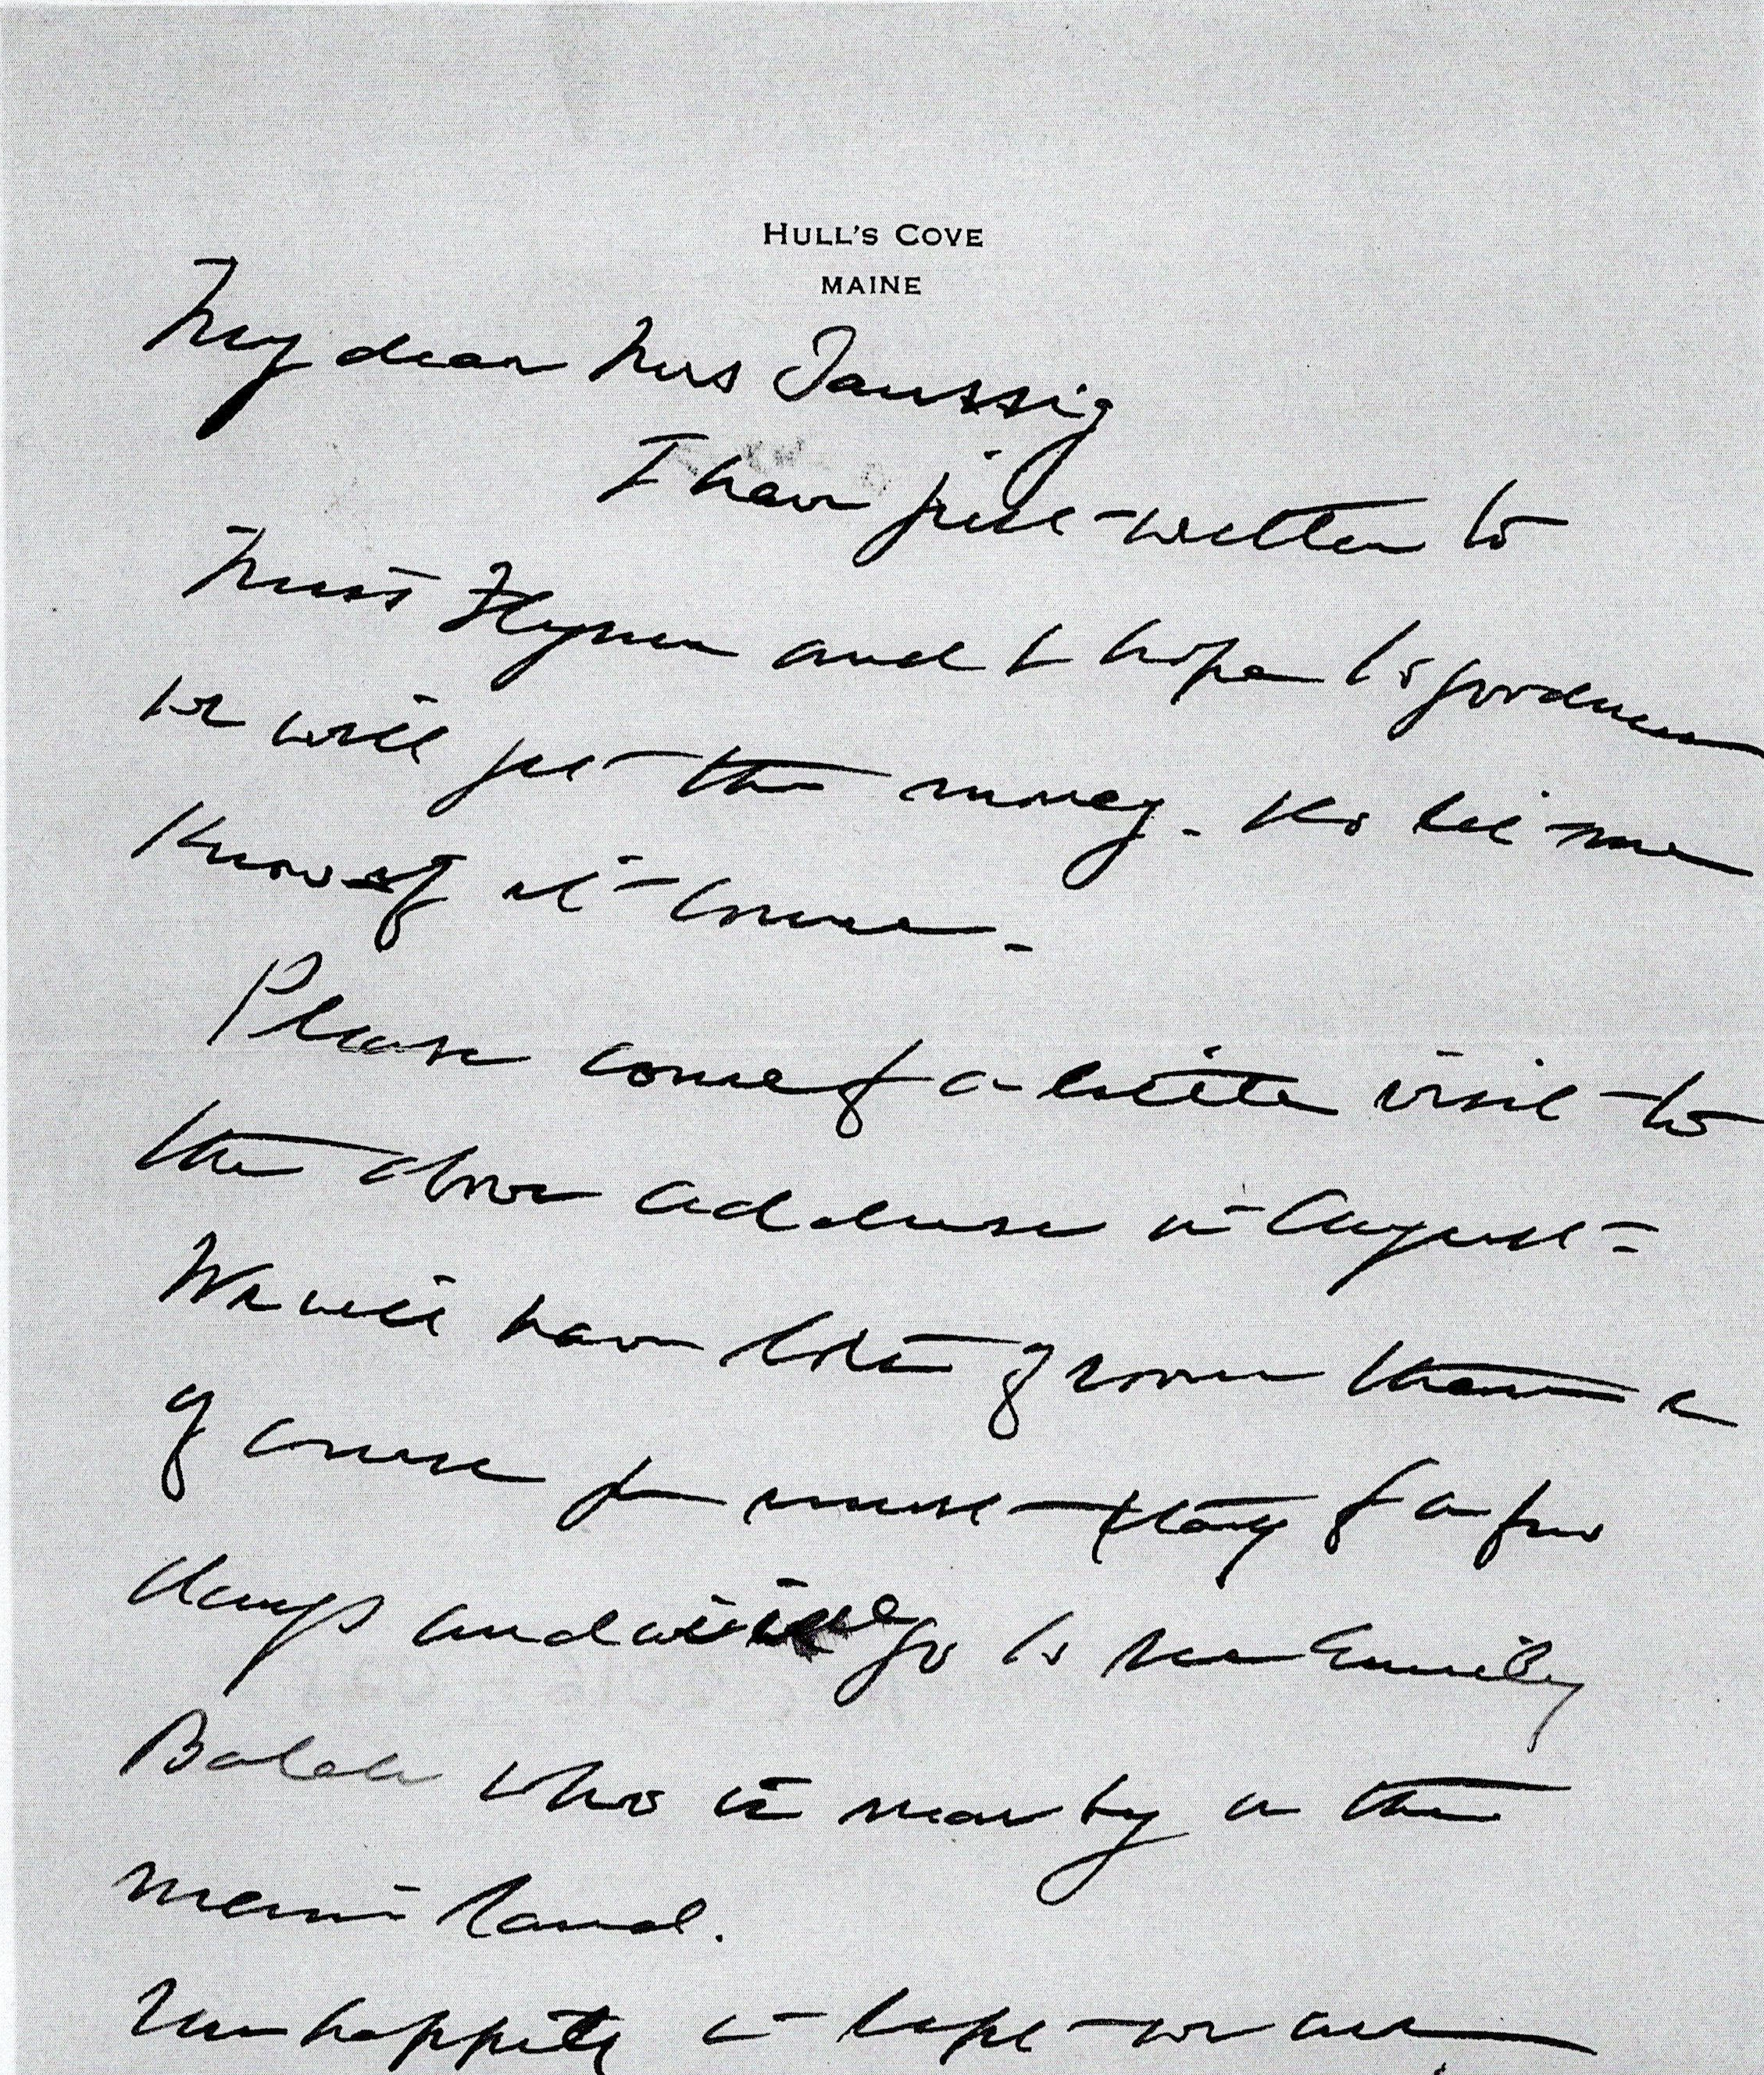 HULL'S COVE
MAINE
My dear Mrs Taussig
I have just written to
Miss Flynn and I hope to goodness
we will get the money. Do let me
know if it comes.
Please come for a little visit to
the above address in August -
We will have lots of room there &
of course you must stay for a few
days and we will go to see Emily
Balch who is near by on the
main land.
Unhappily I hope we are